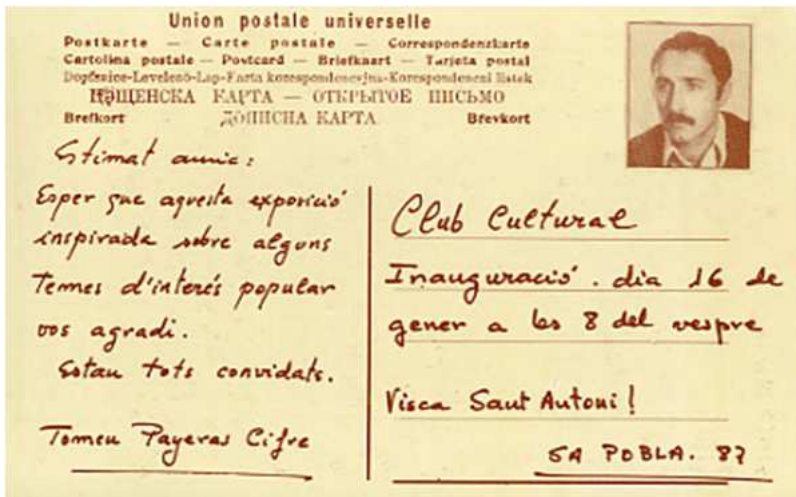 Union postale universelle
Postkarte — Carte postale — Correspondenzkarte
Cartolina postale — Postcard — Briefkaart — Tarjeta postal
Dopisnice-Levelező-Lap-Karta korespondencyjna-Korespondencni listek
КАРТА — ОТКРЫТОЕ ПИСЬМО
Brefkort ДОПИСНА КАРТА Brevkort
Estimat amic:
Esper que aquesta exposició
inspirada sobre alguns
temes d'interés popular
vos agradi.
Estau tots convidats.
Tomeu Payeras Cifre
Club Cultural
Inauguració. dia 16 de
gener a les 8 del vespre
Visca Sant Antoni!
SA POBLA. 87